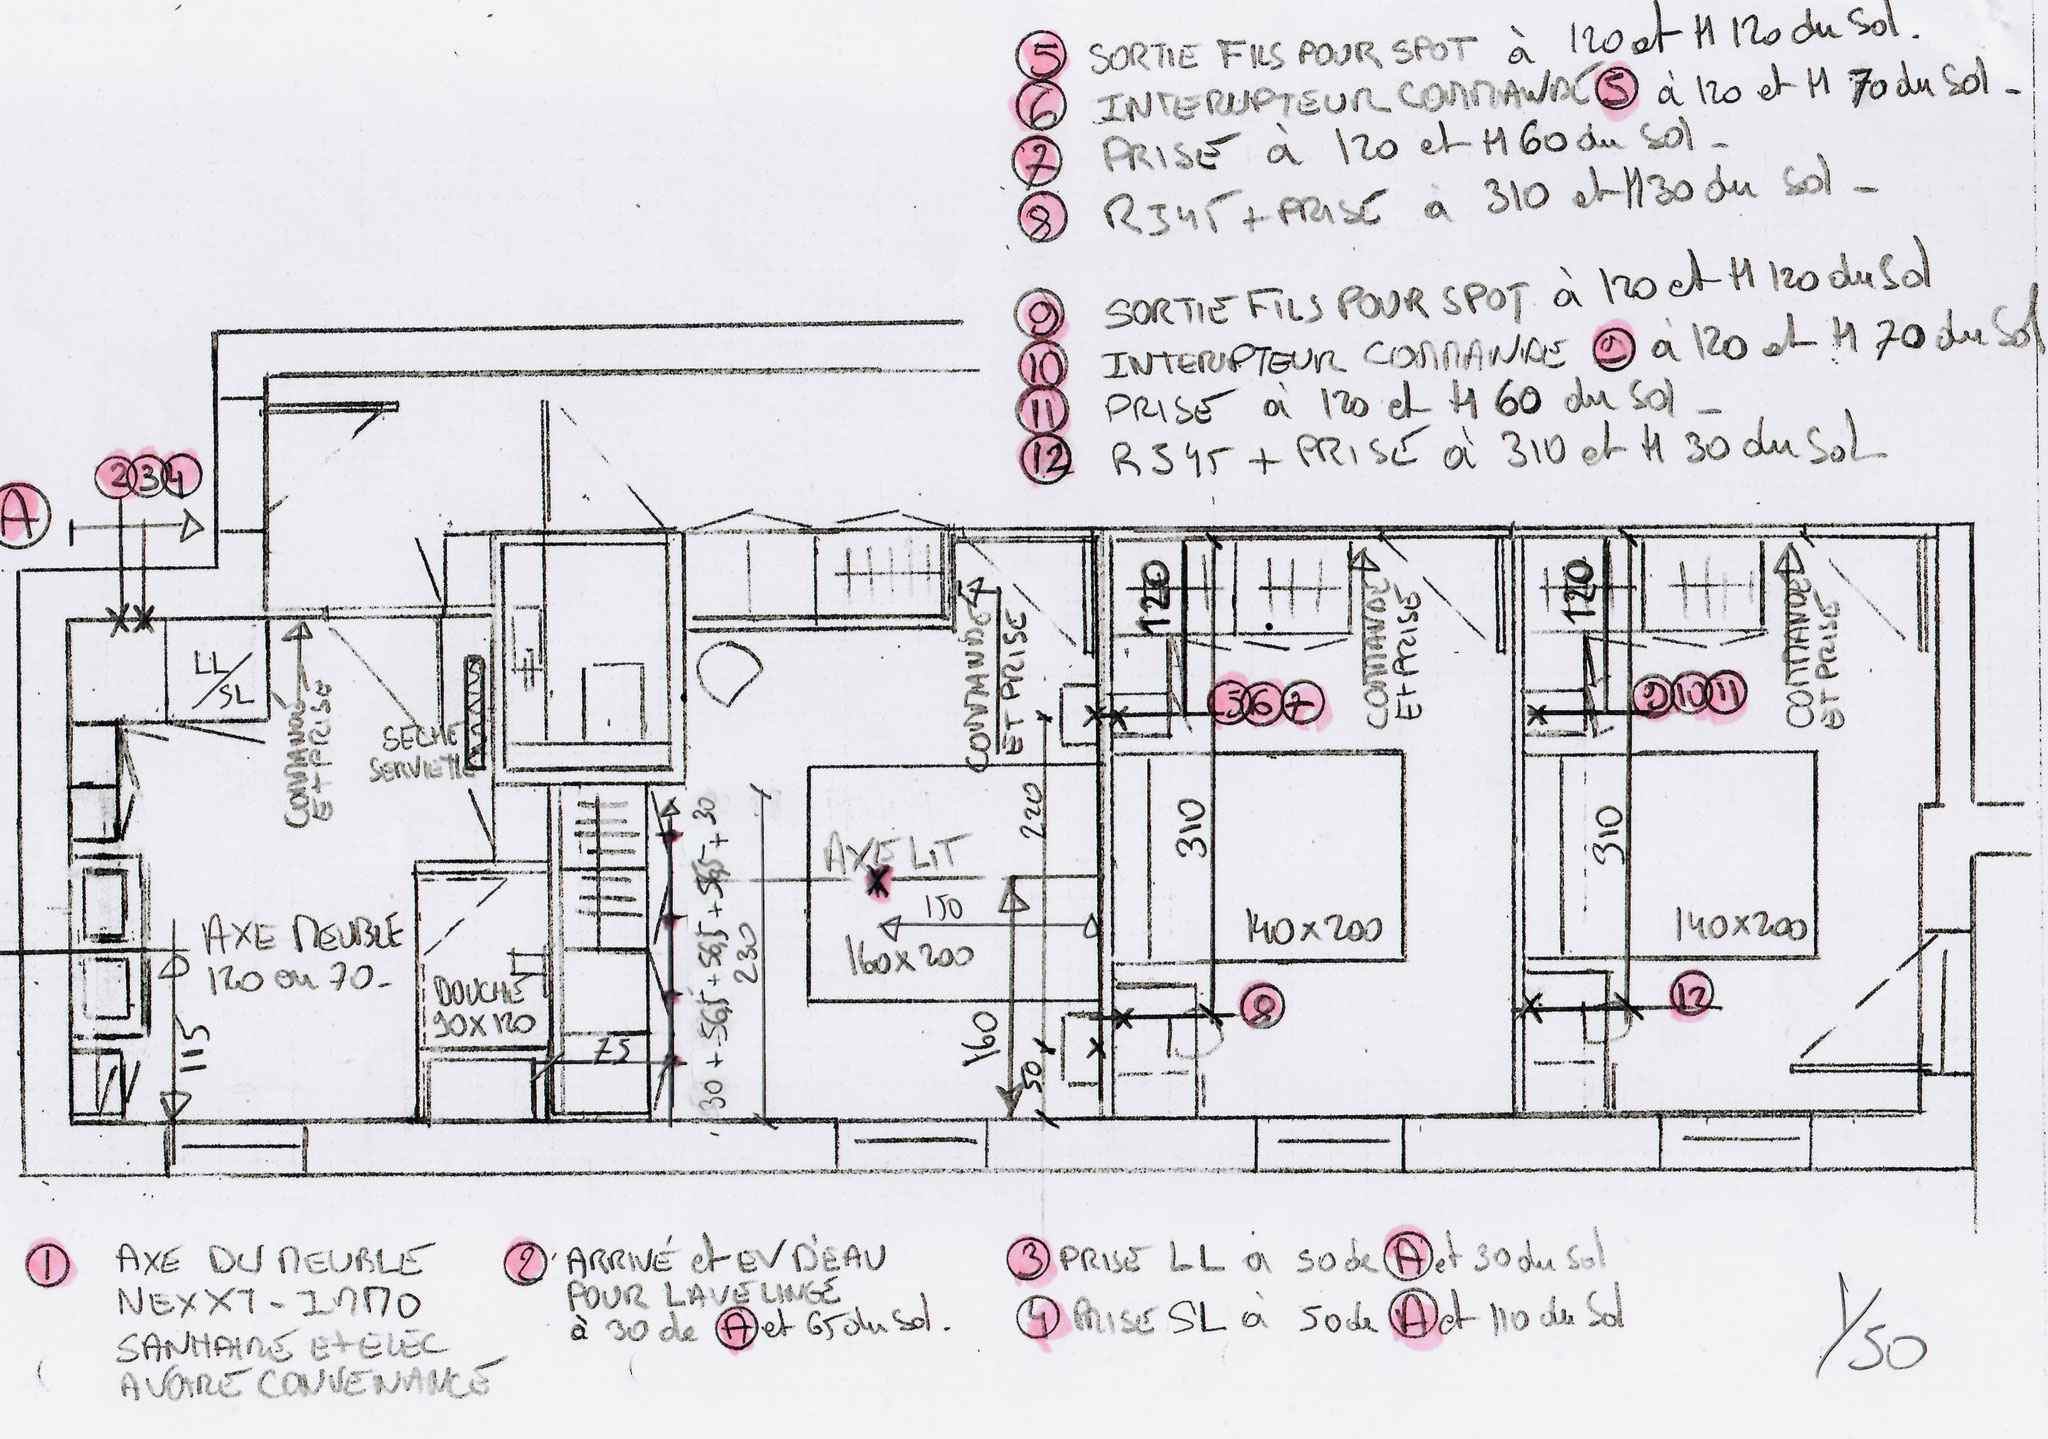 5 SORTIE FILS POUR SPOT à 120 et H 120 du sol.
6 INTERUPTEUR COMMANDE 5 à 120 et H 70 du sol -
7 PRISE à 120 et H 60 du sol -
8 RJ45 + PRISE à 310 et H 30 du sol -
9 SORTIE FILS POUR SPOT à 120 et H 120 du sol
10 INTERUPTEUR COMMANDE 9 à 120 et H 70 du sol
11 PRISE à 120 et H 60 du sol -
12 RJ45 + PRISE à 310 et H 30 du sol
2 3 4
A
LL/SL
COMMANDE
ET PRISE
SECHE
SERVIETTE
COMMANDE
ET PRISE
120
COMMANDE
ET PRISE
120
COMMANDE
ET PRISE
5 6 7
9 10 11
AXE MEUBLE
120 ou 70 -
115
DOUCHE
90X120
75
30 + 56,5 + 56,5 + 56,5 + 30
230
AXE LIT
150
160X200
220
160
50
310
140X200
8
310
140X200
12
1 AXE DU MEUBLE
NEXXT - IMMO
SANITAIRE ET ELEC
A VOTRE CONVENANCE
2 ARRIVÉ et EV D'EAU
POUR LAVE LINGE
à 30 de A et 65 du sol.
3 PRISE LL à 50 de A et 30 du sol
4 PRISE SL à 50 de A et 110 du sol
1/50